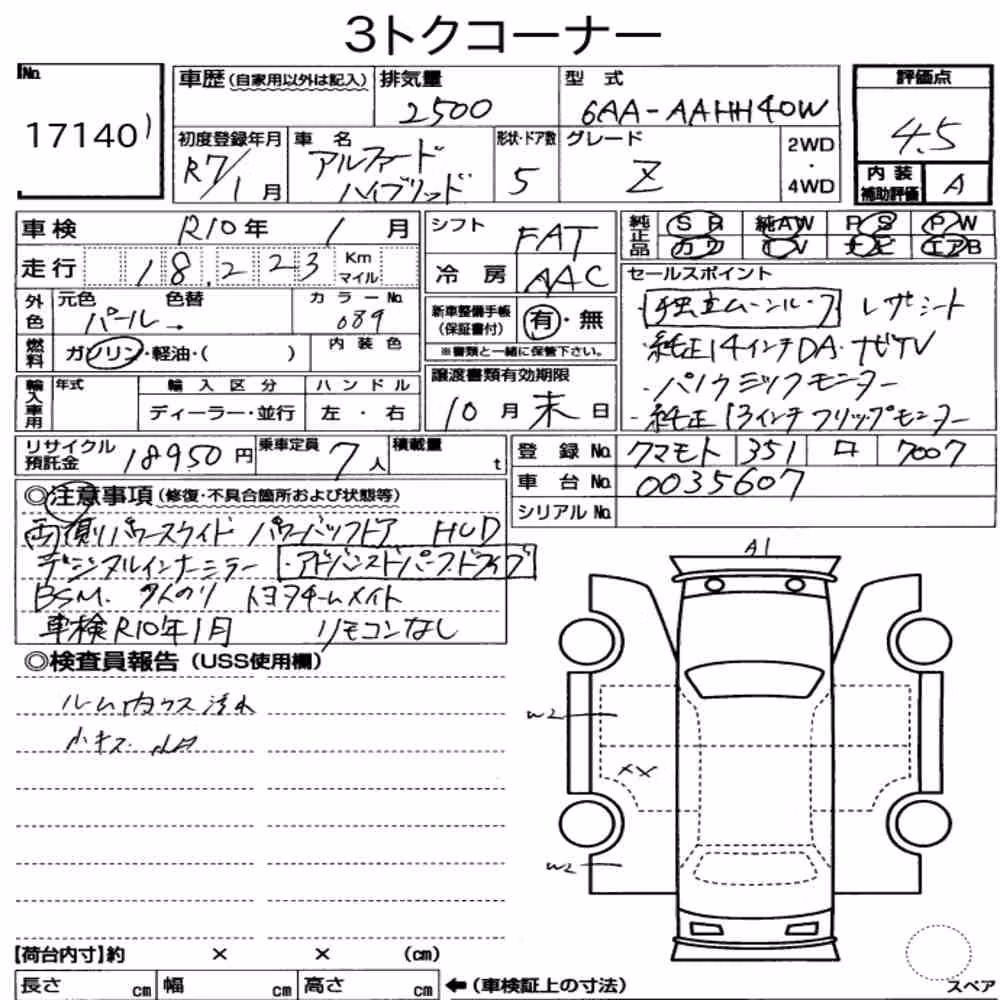 3トクコーナー
No.
17140
車歴(自家用以外は記入)
排気量
2500
型式
6AA-AAHH40W
評価点
4.5
内装補助評価
A
初度登録年月
R7/1月
車名
アルファード
ハイブリッド
形状・ドア数
5
グレード
Z
2WD
・
4WD
車検 R10年 1月
走行 18,223 Km マイル
外色 元色 色替 カラーNo.
パール→ 089
燃料 ガソリン・軽油・( ) 内装色
輸入車用 年式 輸入区分 ハンドル
ディーラー・並行 左・右
シフト FAT
冷房 AAC
新車整備手帳(保証書付) 有・無
※書類と一緒に保管下さい。
譲渡書類有効期限
10月末日
純正品 SR 純AW PS PW
カワ TV ナビ エアB
セールスポイント
・独立ムーンルーフ レザシート
・純正14インチDA・ナビTV
・パノラミックモニター
・純正13インチフリップモニター
リサイクル預託金 18950円 乗車定員 7人 積載量 t
登録No. クマモト 351 ロ 7007
車台No. 0035607
シリアルNo.
◎注意事項(修復・不具合箇所および状態等)
両側パワースライド パワーバックドア HUD
デジタルインナーミラー ・アドバンスドパーク.ドライブ
BSM. トヨタチームメイト
車検R10年1月 リモコンなし
◎検査員報告(USS使用欄)
ルーム内
小キズ.
A1
W2
XX
W2
【荷台内寸】約 × × (cm)
長さ cm 幅 cm 高さ cm ←(車検証上の寸法)
スペア